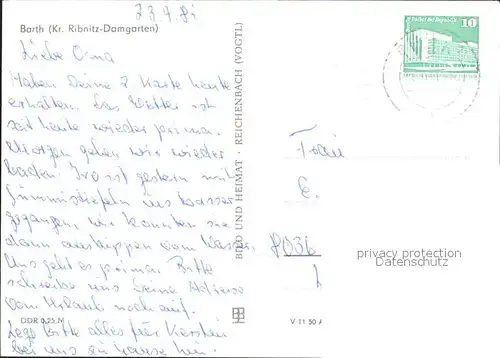 23.7.81
Barth (Kr. Ribnitz-Damgarten)
Liebe Oma
Haben Deine 2 Karte heute
erhalten. Das Wetter ist
seit heute wieder prima.
Morgen gehen wir wieder
baden. ist gestern mit
Gummistiefeln ins Wasser
gegangen, wir konnten sie
dann auskippen vom Wasser.
Uns geht es prima. Bitte
schreibe uns Deine Adresse
vom Urlaub noch auf.
Lege bitte alles für Kerstin
bei uns zu Hause hin.
DDR 0,25 M
BILD UND HEIMAT · REICHENBACH (VOGTL)
V 11 50 A
10
Frau
E.
8036
privacy protection
Datenschutz